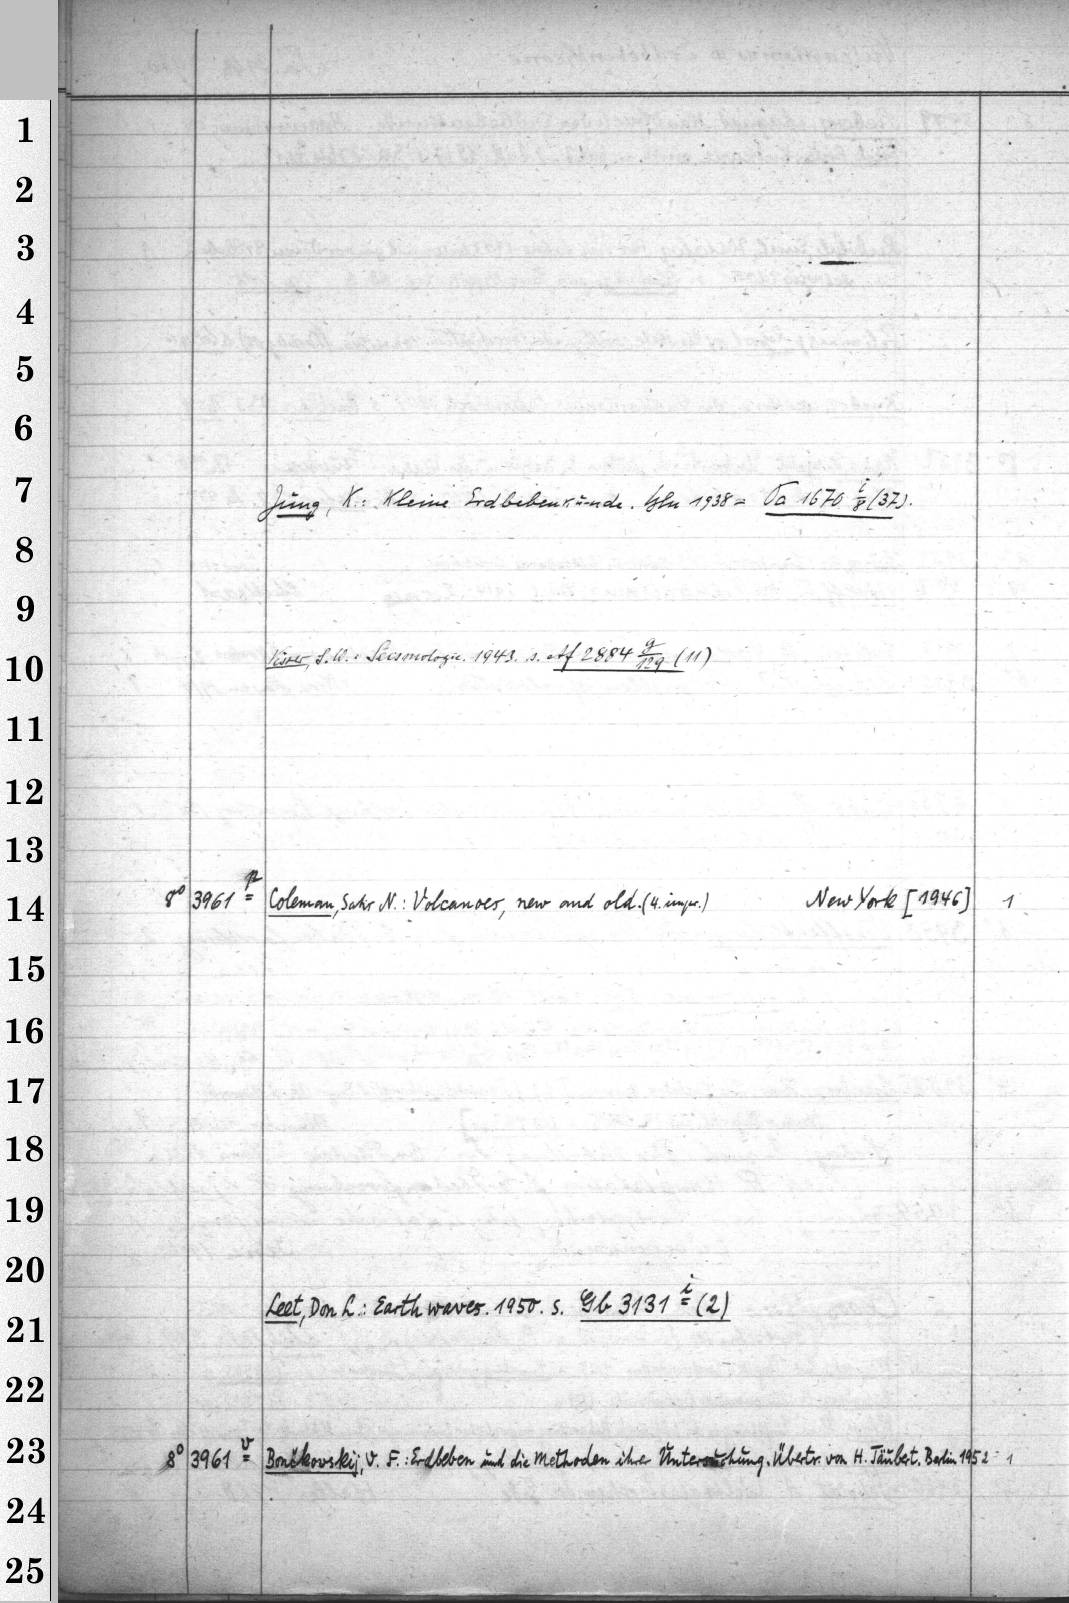 1
2
3
4
5
6
7
Jung, K.: Kleine Erdbebenkunde. Bln 1938 = Oa 1670 i/8 (37).
8
9
10
Visser, S.W.: Seismologie. 1943. s. Af 2884 g/129 (11)
11
12
13
14
8° 3961 p Coleman, Satis N.: Volcanoes, new and old. (4. impr.) New York [1946] 1
15
16
17
18
19
20
21
Leet, Don L.: Earth waves. 1950. s. Gb 3131 i (2)
22
23
8° 3961 v Bončkovskij, V. F.: Erdbeben und die Methoden ihrer Untersuchung. Übertr. von H. Täubert. Berlin 1952 1
24
25